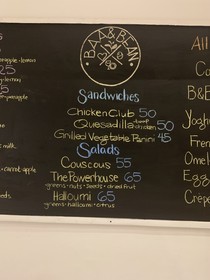 BALL & BEAN
Sandwiches
Chicken Club 50
Quesadilla beef chicken 50
Grilled Vegetable Panini 45
Salads
Couscous 55
The Powerhouse 65
greens • nuts • seeds • dried fruit
Halloumi 65
greens • halloumi • citrus
lemon
25
pineapple
milk
carrot apple
All
B&B
Yogh
Fren
Omel
Egg
Crepe